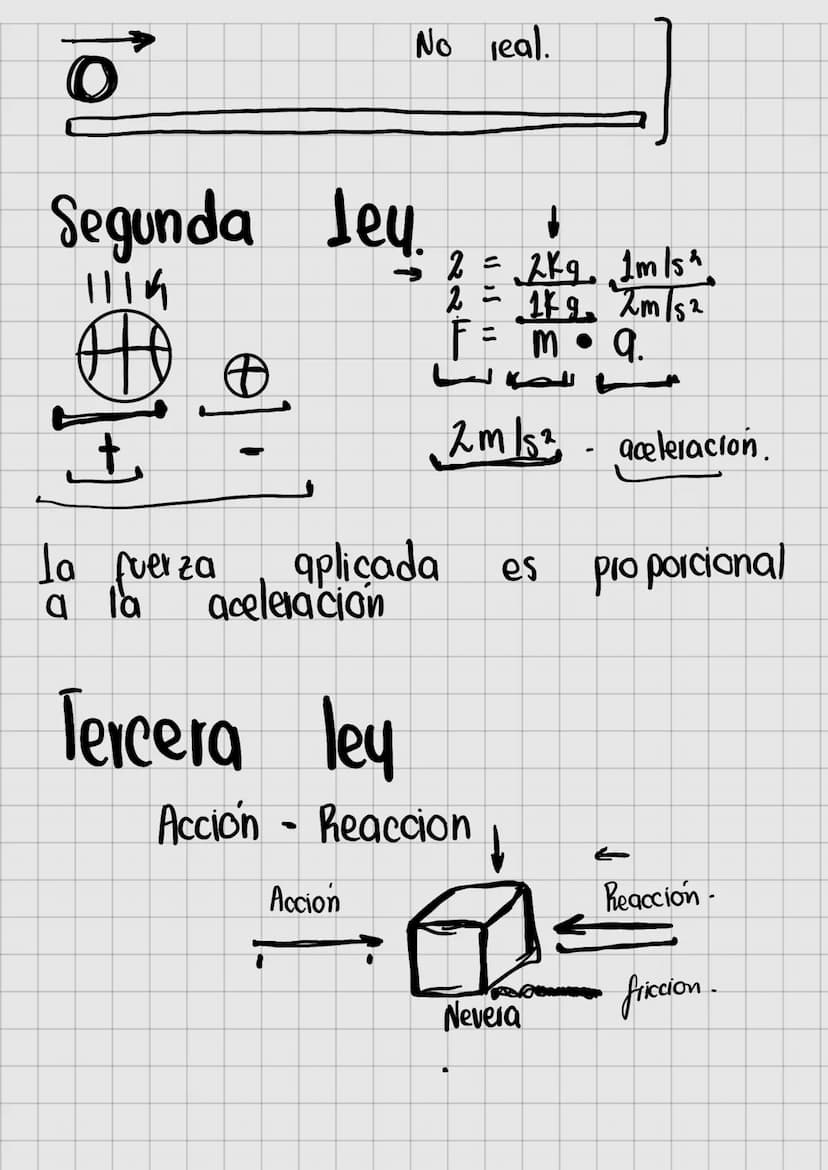 No real.
Segunda ley.
→ 2 = 2Kg. 1m/s²
2 = 1Kg. 2m/s²
F = m • a.
+ -
2m/s² - aceleración.
la fuerza aplicada es proporcional
a la aceleración
Tercera ley
Acción - Reaccion
Acción
Reacción.
friccion.
Nevera